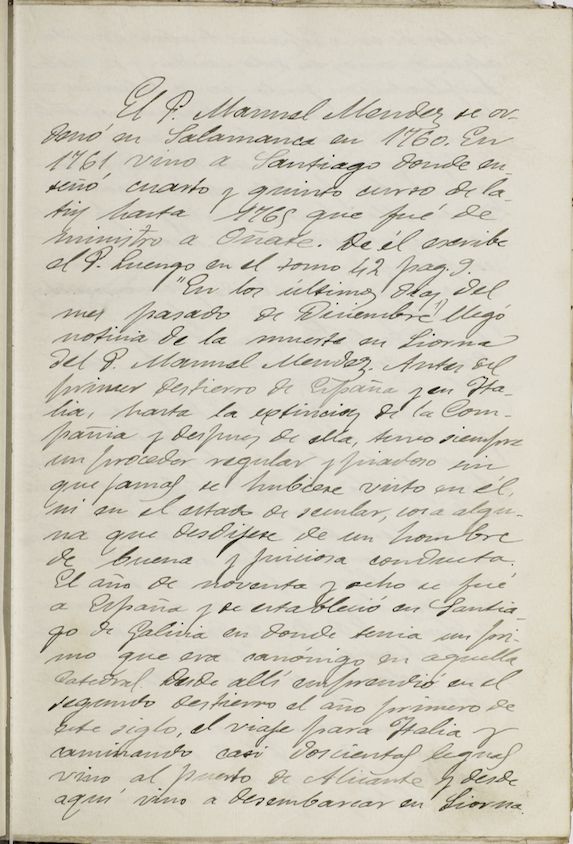 El P. Manuel Mendez se or-
denó en Salamanca en 1760. En
1761 vino a Santiago donde en-
señó cuarto y quinto curso de la-
tin hasta 1765 que fué de
ministro a Oñate. De él escribe
el P. Luengo en el tomo 42 pag. 9.
"En los últimos dias del
mes pasado de Diciembre llegó
noticia de la muerte en Liorna
del P. Manuel Mendez. Antes del
primer destierro de España y en Ita-
lia, hasta la extincion de la Com-
pañia y despues de ella, tuvo siempre
un proceder regular y piadoso sin
que jamas se hubiese visto en él,
ni en el estado de secular, cosa algu-
na que desdijese de un hombre
de buena y juiciosa conducta.
El año de noventa y ocho se fué
a España y se estableció en Santia-
go de Galicia en donde tenia un pri-
mo que era canónigo en aquella
Catedral. Desde allí emprendió en el
segundo destierro el año primero de
este siglo, el viaje para Italia y
caminando casi doscientas leguas
vino al puerto de Alicante y desde
aquí vino a desembarcar en Liorna.